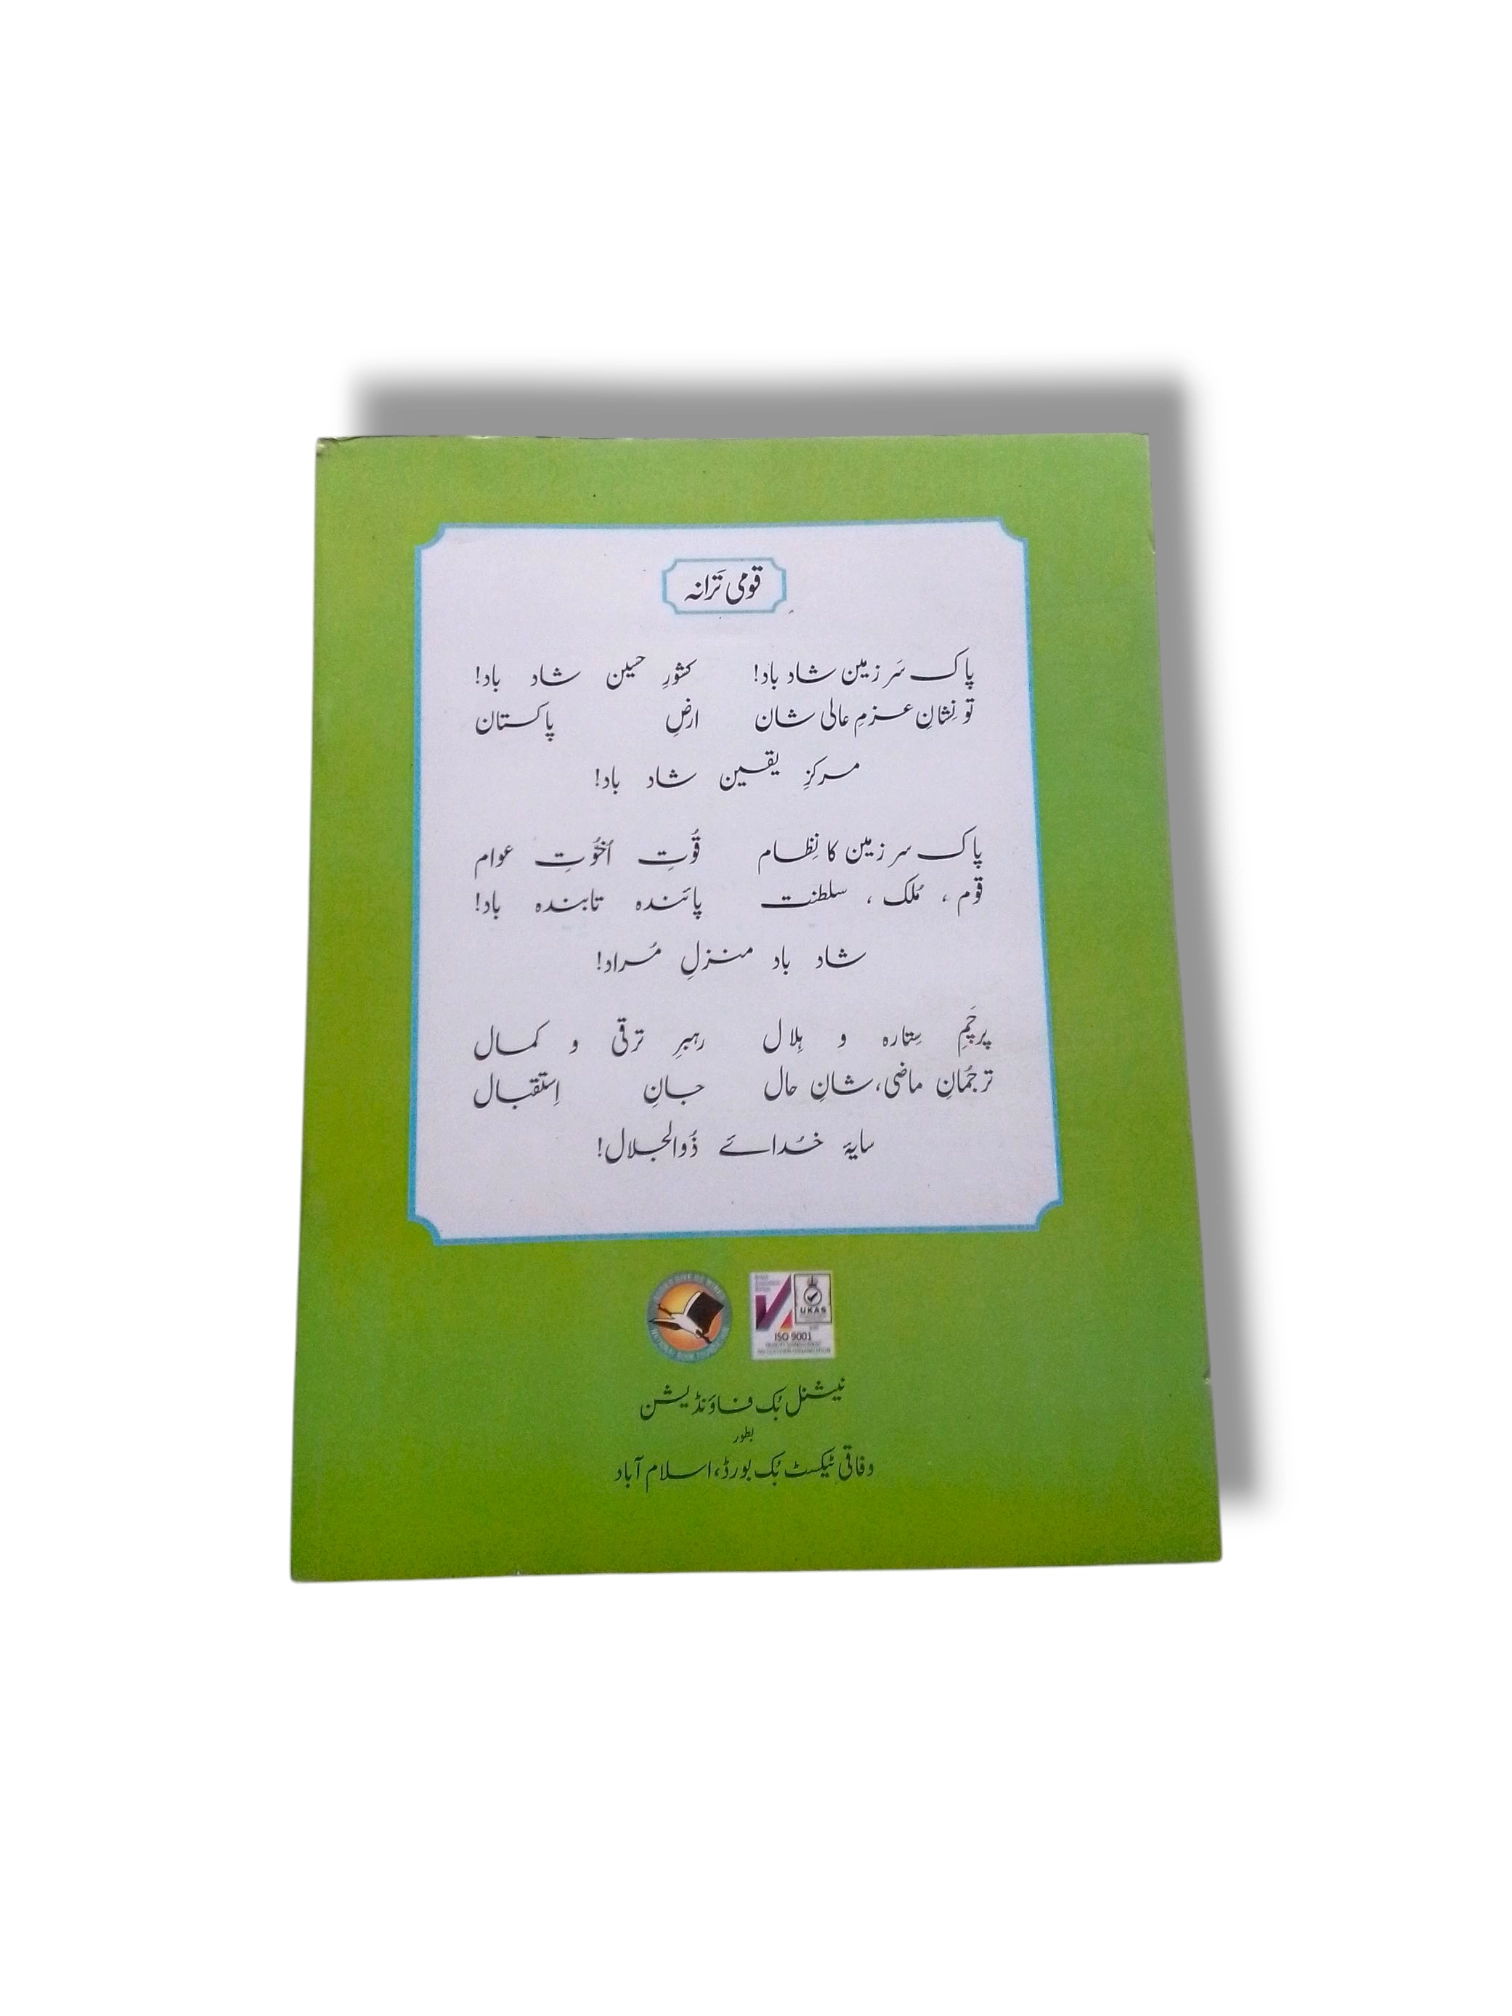 قومی تَرانہ
پاک سَرزمین شاد باد! کشورِ حسین شاد باد!
تو نِشانِ عزمِ عالی شان ارضِ پاکستان
مرکزِ یقین شاد باد!
پاک سرزمین کا نِظام قُوتِ اُخُوّتِ عوام
قوم ، مُلک ، سلطنت پائندہ تابندہ باد!
شاد باد منزلِ مُراد!
پرچَمِ سِتارہ و ہِلال رہبرِ ترقی و کمال
ترجُمانِ ماضی، شانِ حال جانِ اِستقبال
سایۂ خُدائے ذُوالجلال!
UKAS
ISO 9001
نیشنل بُک فاؤنڈیشن
بطور
وفاقی ٹیکسٹ بُک بورڈ، اسلام آباد